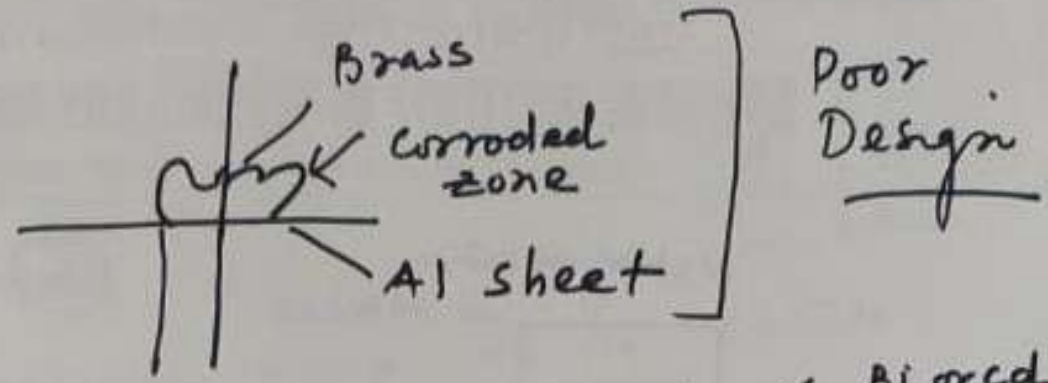 Brass
corroded
zone
Al sheet
Poor
Design